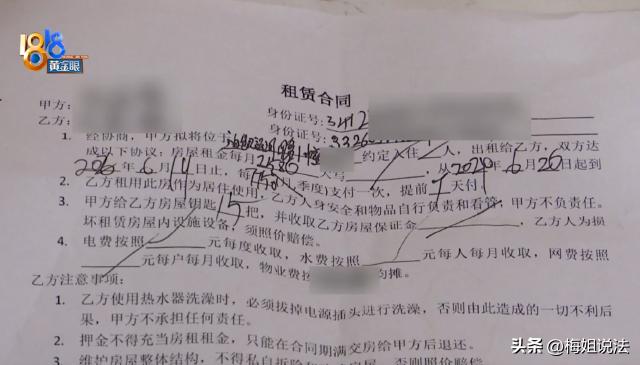 1818
黄金眼
租赁合同
甲方:
身份证号:3412
乙方:
身份证号:3326
1. 经协商,甲方拟将位于 约定入住 人,出租给乙方,双方达
成以下协议:房屋租金每月2580 从2024年6月26日起到
年6月14日止,每 季度)支付一次,提前7天付
2. 乙方租用此房作为居住使用,乙方人身安全和物品自行负责和看管,甲方不负责任。
3. 甲方给乙方房屋钥匙 把,并收取乙方房屋保证金 ,乙方人为损
坏租赁房屋内设施设备,须照价赔偿。
4. 电费按照 元每度收取,水费按照 元每人每月收取,网费按照
元每户每月收取,物业费按 均摊。
乙方注意事项:
1. 乙方使用热水器洗澡时,必须拔掉电源插头进行洗澡,否则由此造成的一切不利后
果,甲方不承担任何责任。
2. 押金不得充当房租租金,只能在合同期满交房给甲方后退还。
3. 维护房屋整体结构,不得私自拆 房屋,否则照价赔偿
头条 @梅姐说法